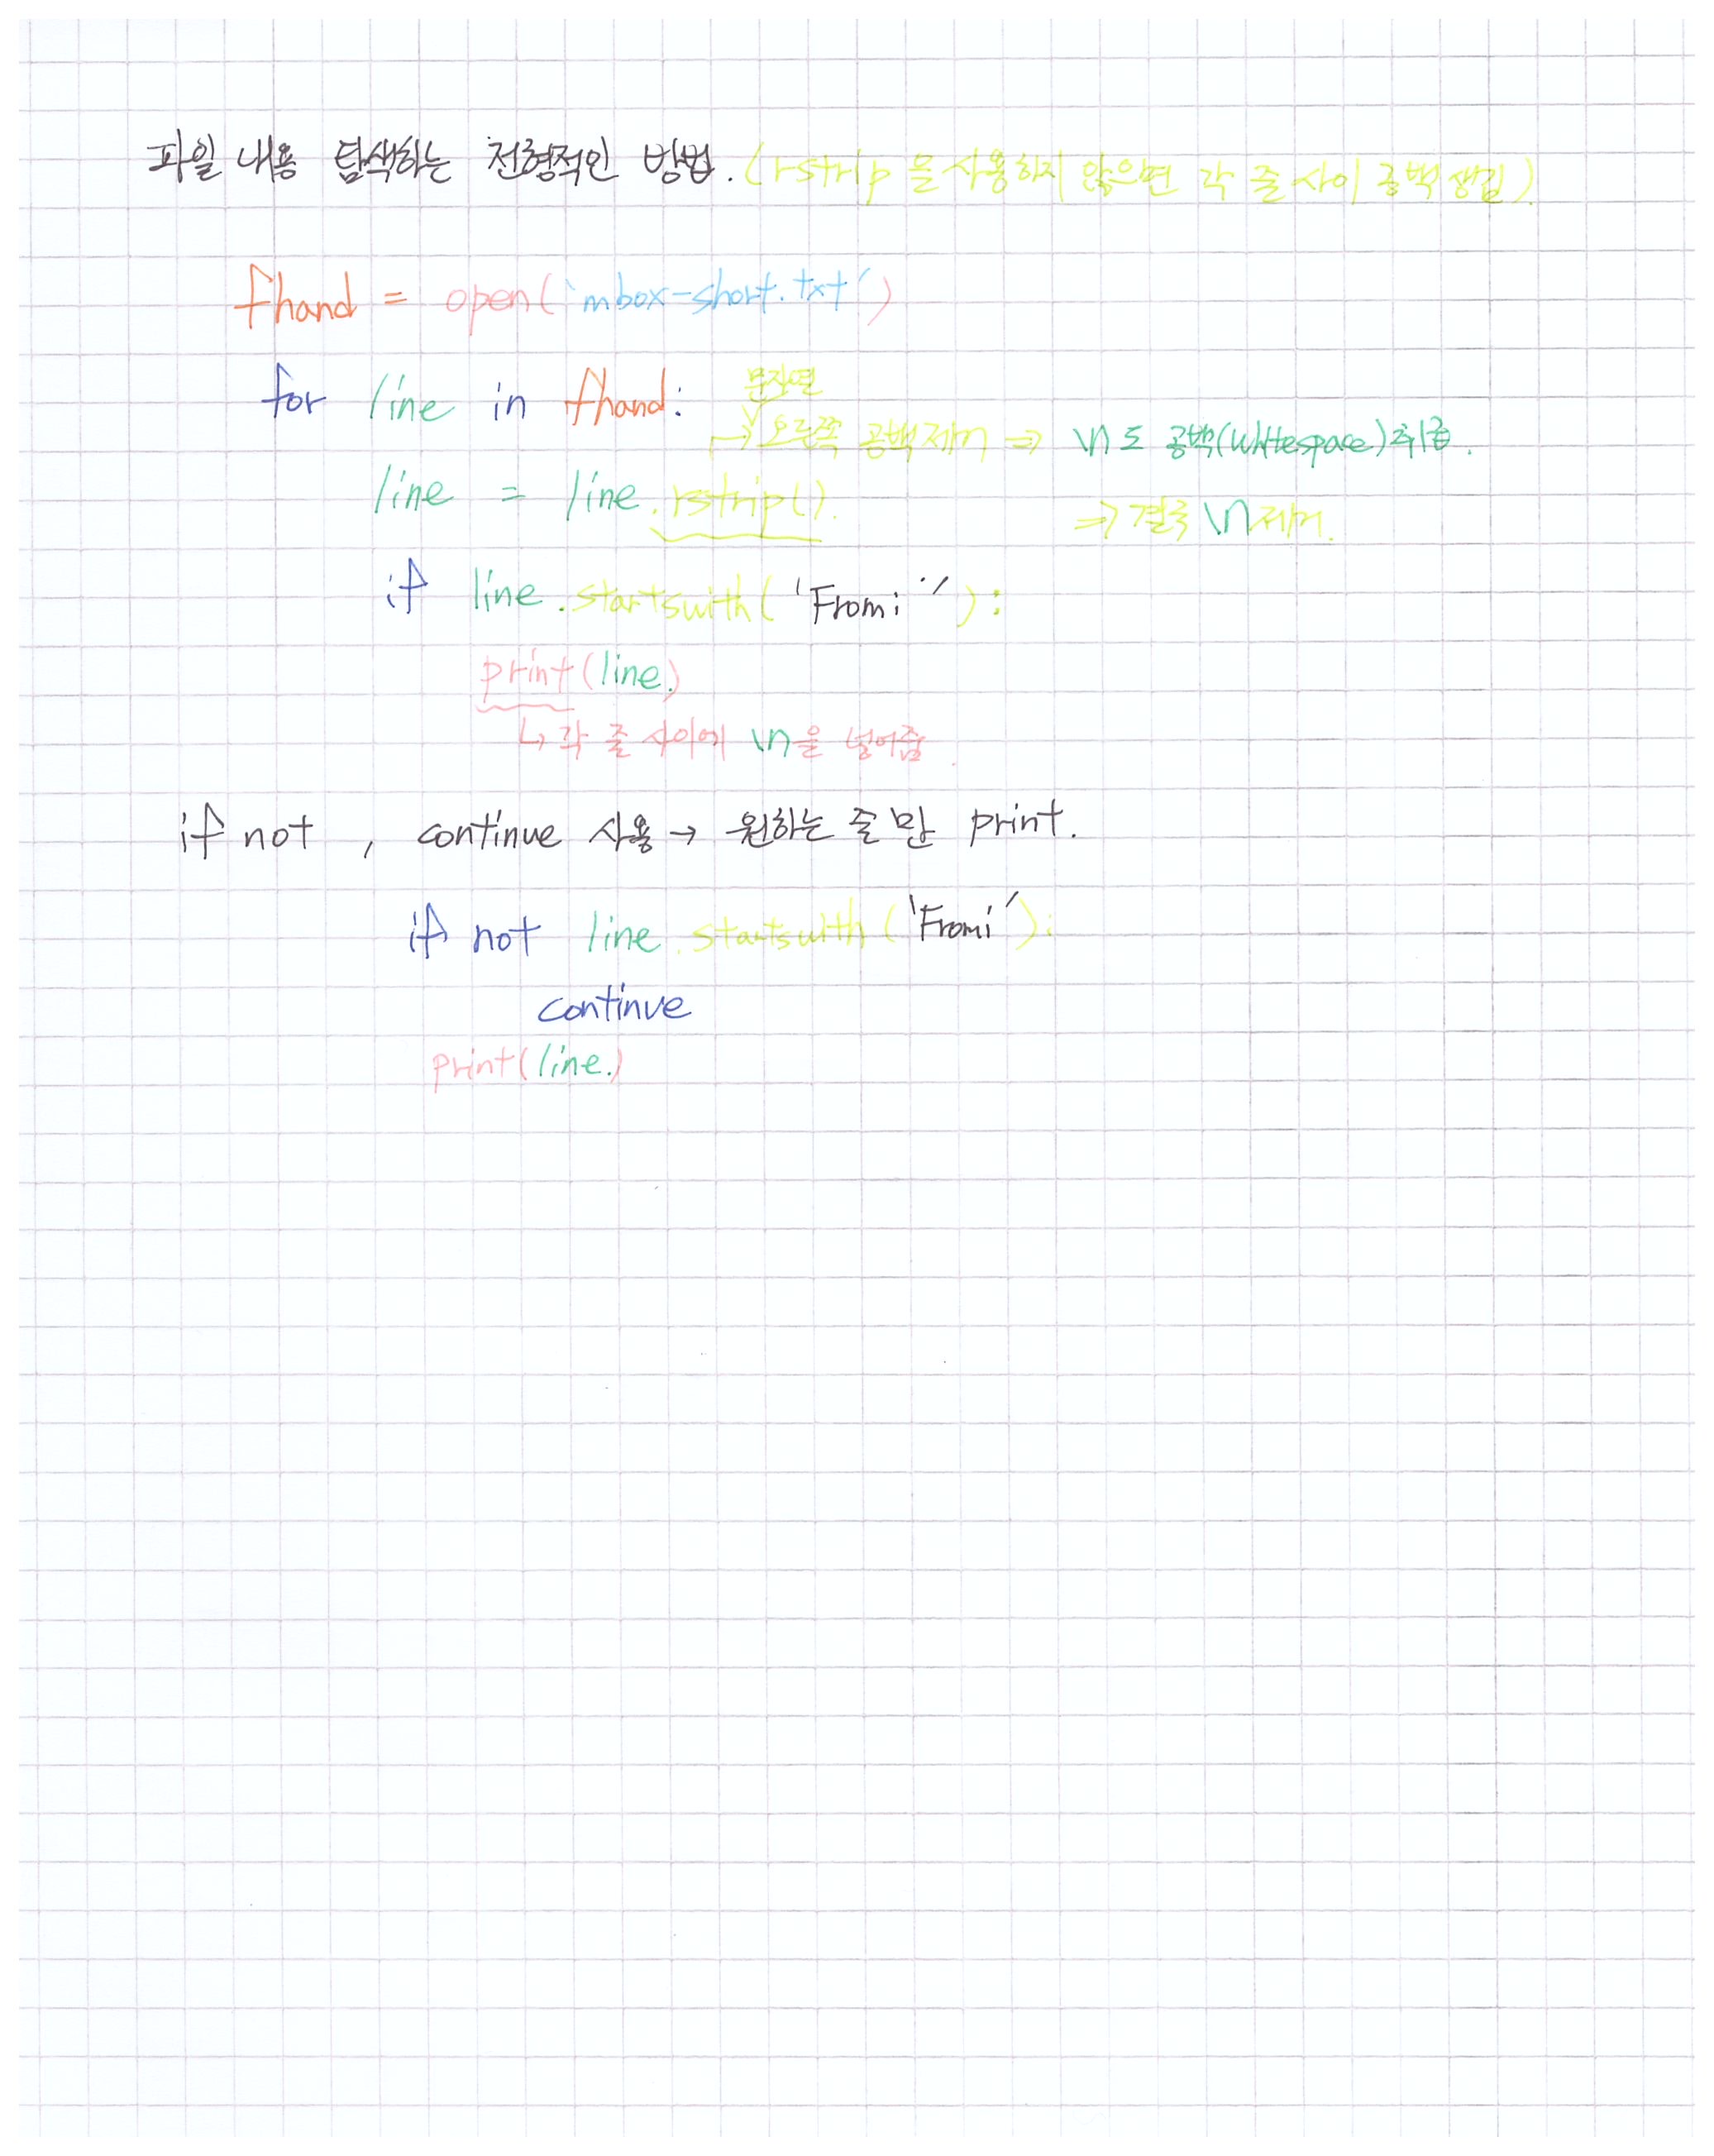 파일 내용 탐색하는 전형적인 방법. (rstrip 을 사용하지 않으면 각 줄 사이 공백 생김)
fhand = open('mbox-short.txt')
for line in fhand:
문자열
→ 오른쪽 공백 제거 ⇒ \n도 공백(whitespace) 취급.
line = line.rstrip()
⇒ 결국 \n 제거.
if line.startswith('From:'):
print(line)
↳ 각 줄 사이에 \n을 넣어줌.
if not, continue 사용 → 원하는 줄만 print.
if not line.startswith('From:'):
continue
print(line)